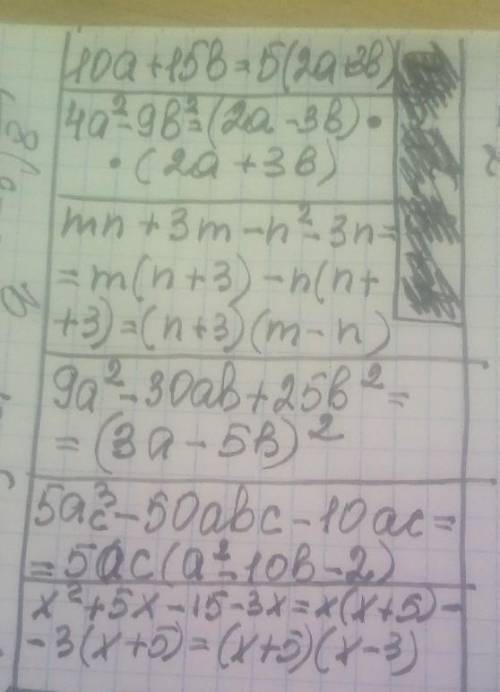 10a+15b=5(2a+3b)
4a²-9b²=(2a-3b)•
•(2a+3b)
mn+3m-n²-3n=
=m(n+3)-n(n+
+3)=(n+3)(m-n)
9a²-30ab+25b²=
=(3a-5b)²
5a³c-50abc-10ac=
=5ac(a²-10b-2)
x²+5x-15-3x=x(x+5)-
-3(x+5)=(x+5)(x-3)